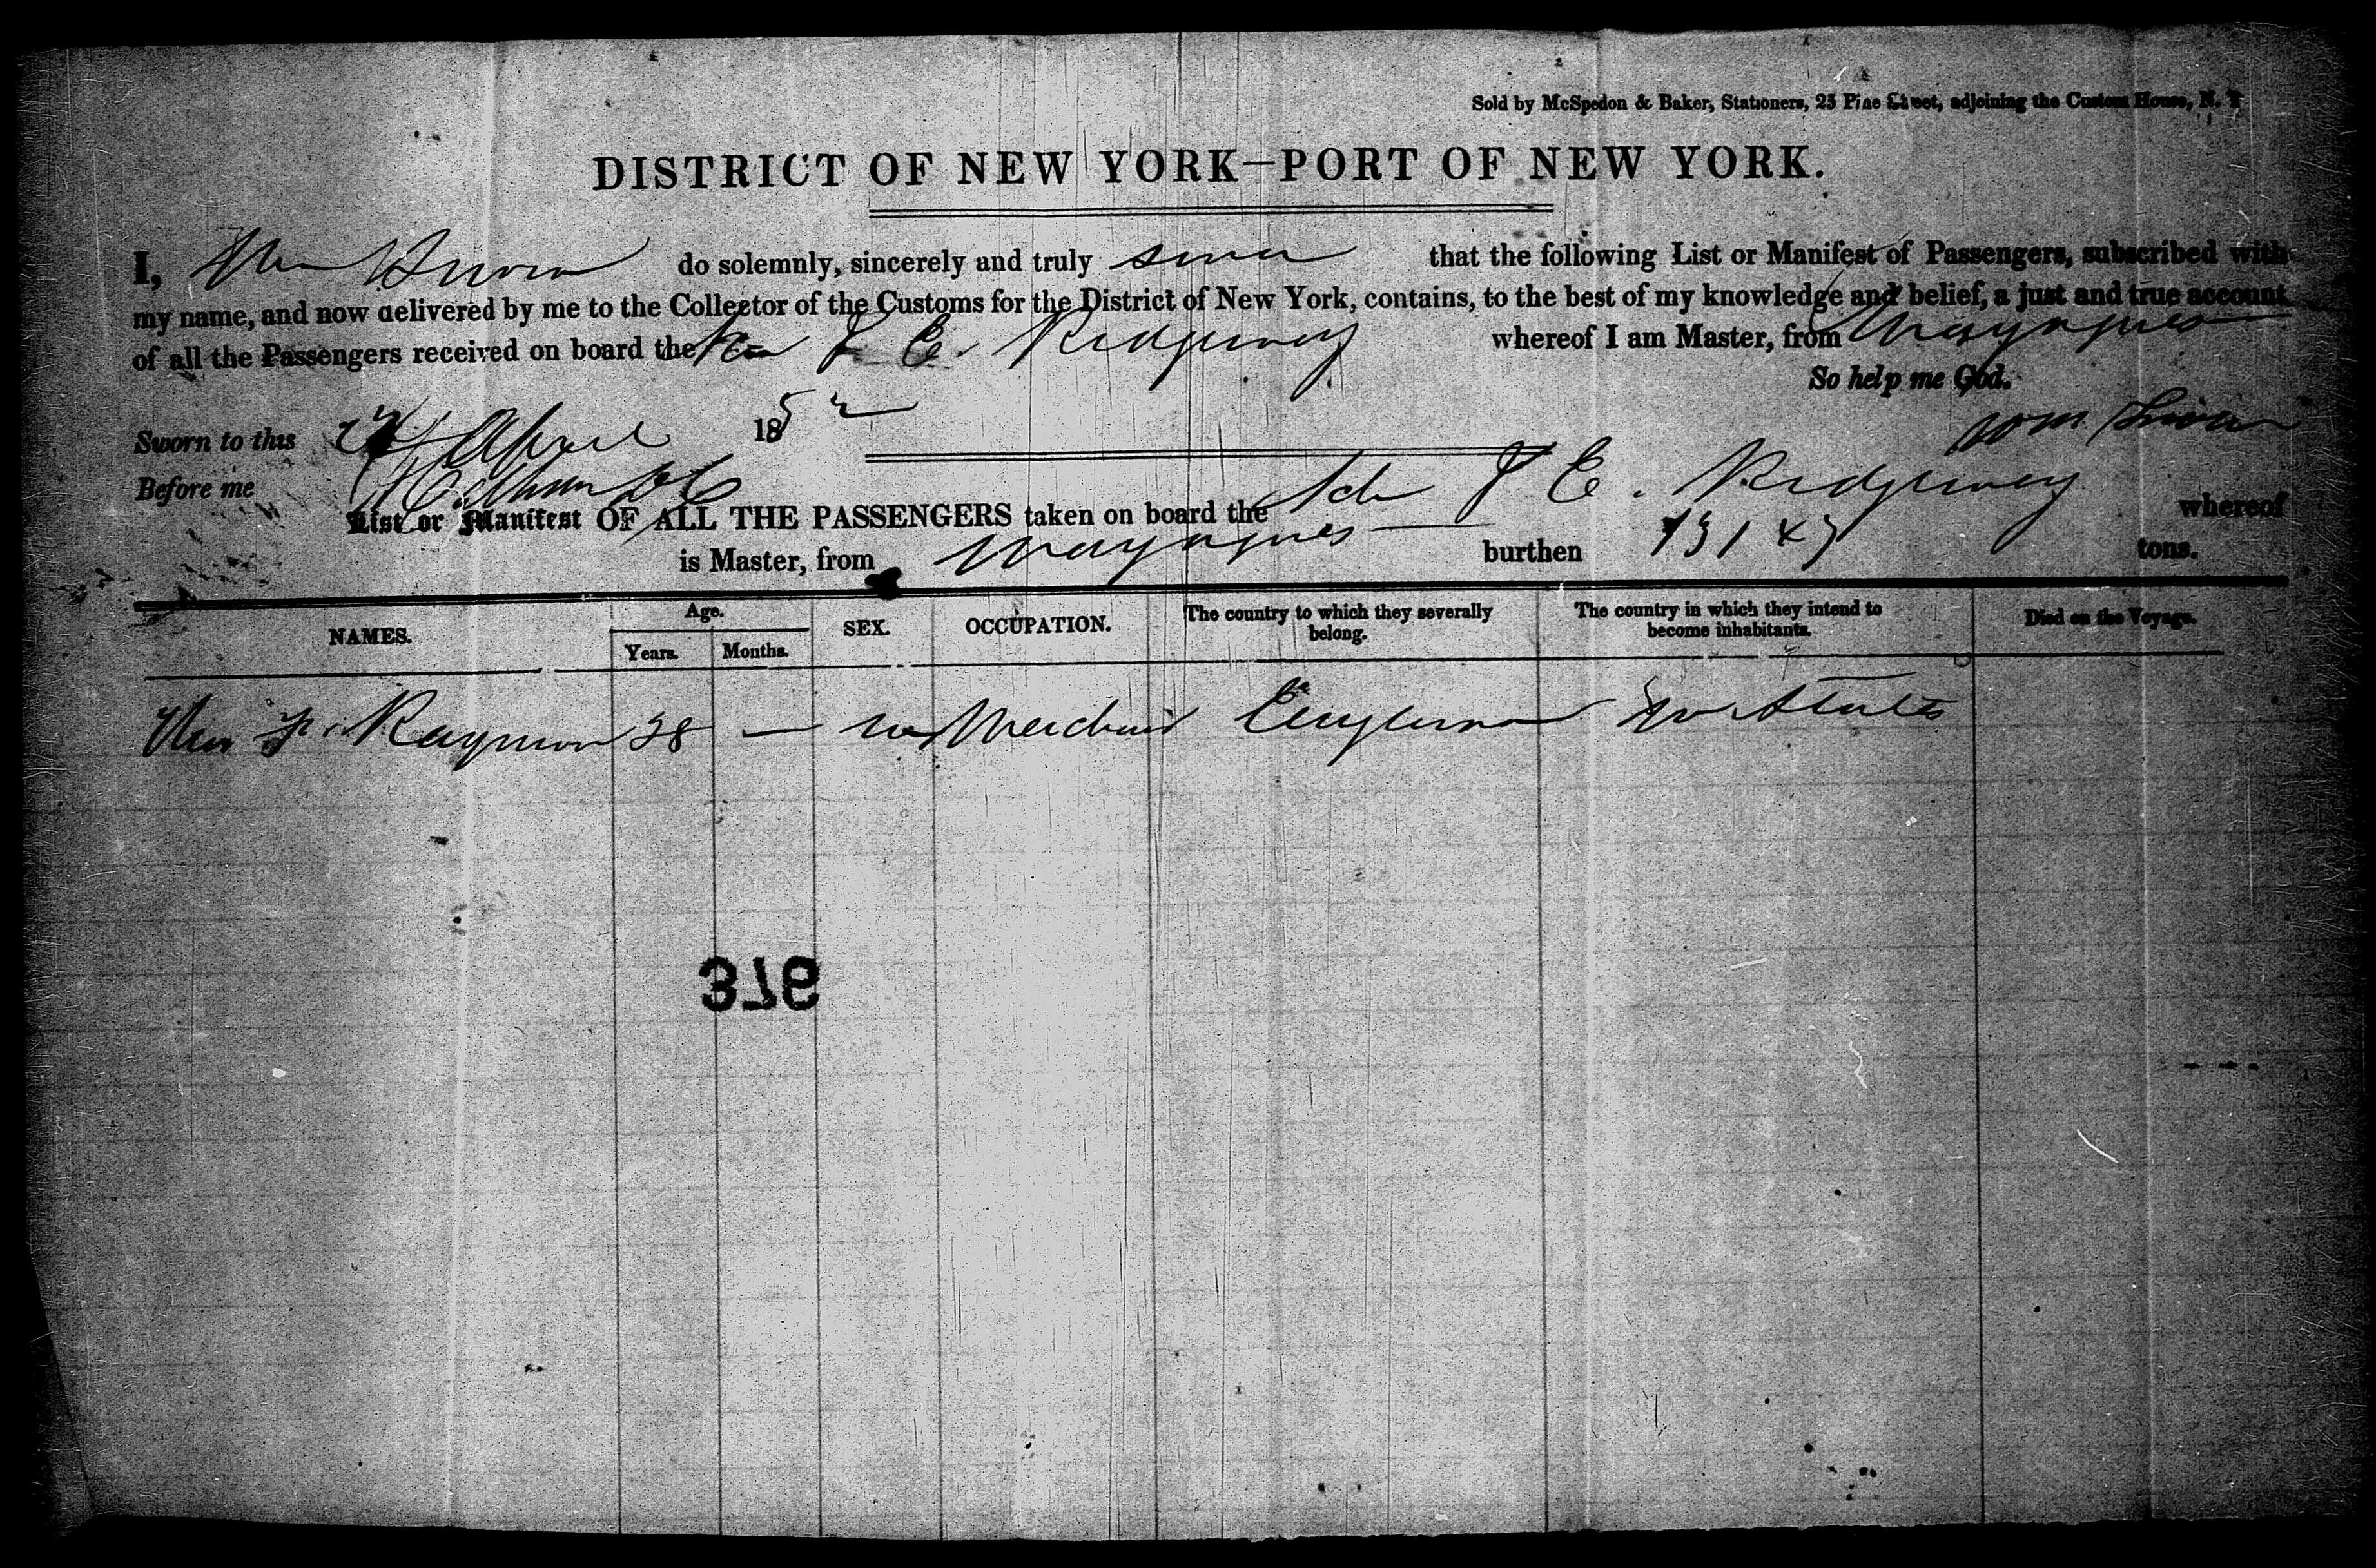 Sold by McSpedon & Baker, Stationers, 25 Pine Street, adjoining the Custom House, N. Y
DISTRICT OF NEW YORK—PORT OF NEW YORK.
I, Wm do solemnly, sincerely and truly swear that the following List or Manifest of Passengers, subscribed with
my name, and now delivered by me to the Collector of the Customs for the District of New York, contains, to the best of my knowledge and belief, a just and true account
of all the Passengers received on board the E. Ridgeway whereof I am Master, from Mayagues
So help me God.
Sworn to this April 1852
Wm
Before me
List or Manifest OF ALL THE PASSENGERS taken on board the Sch E. Ridgeway whereof
is Master, from Mayagues burthen 131 47 tons.
NAMES. Age. SEX. OCCUPATION. The country to which they severally belong. The country in which they intend to become inhabitants. Died on the Voyage.
Years. Months.
Wm F. Raymon 38 — Merchant England States
376